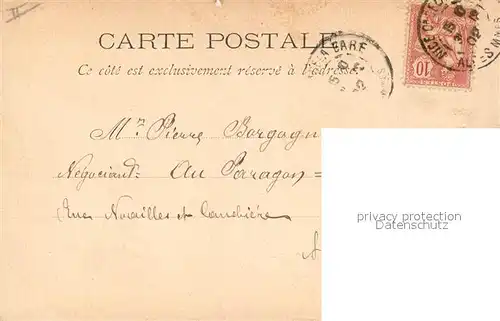 CARTE POSTALE
Ce côté est exclusivement réservé à l'adresse
GARE
10
Mr Pierre
Négociant Au Paragon =
Rues Noailles et Cannebière
privacy protection
Veikkos.com